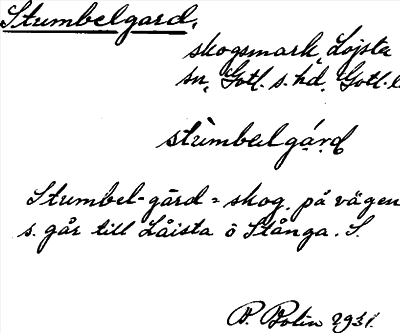 Stumbelgard,
skogsmark, Lojsta
sn, Gotl. s. hd, Gotl. l
stùmbælgá̄rd
Stumbel-gård = skog, på vägen
s. går till Låista ö Stånga. S.
P. Bolin 1931.